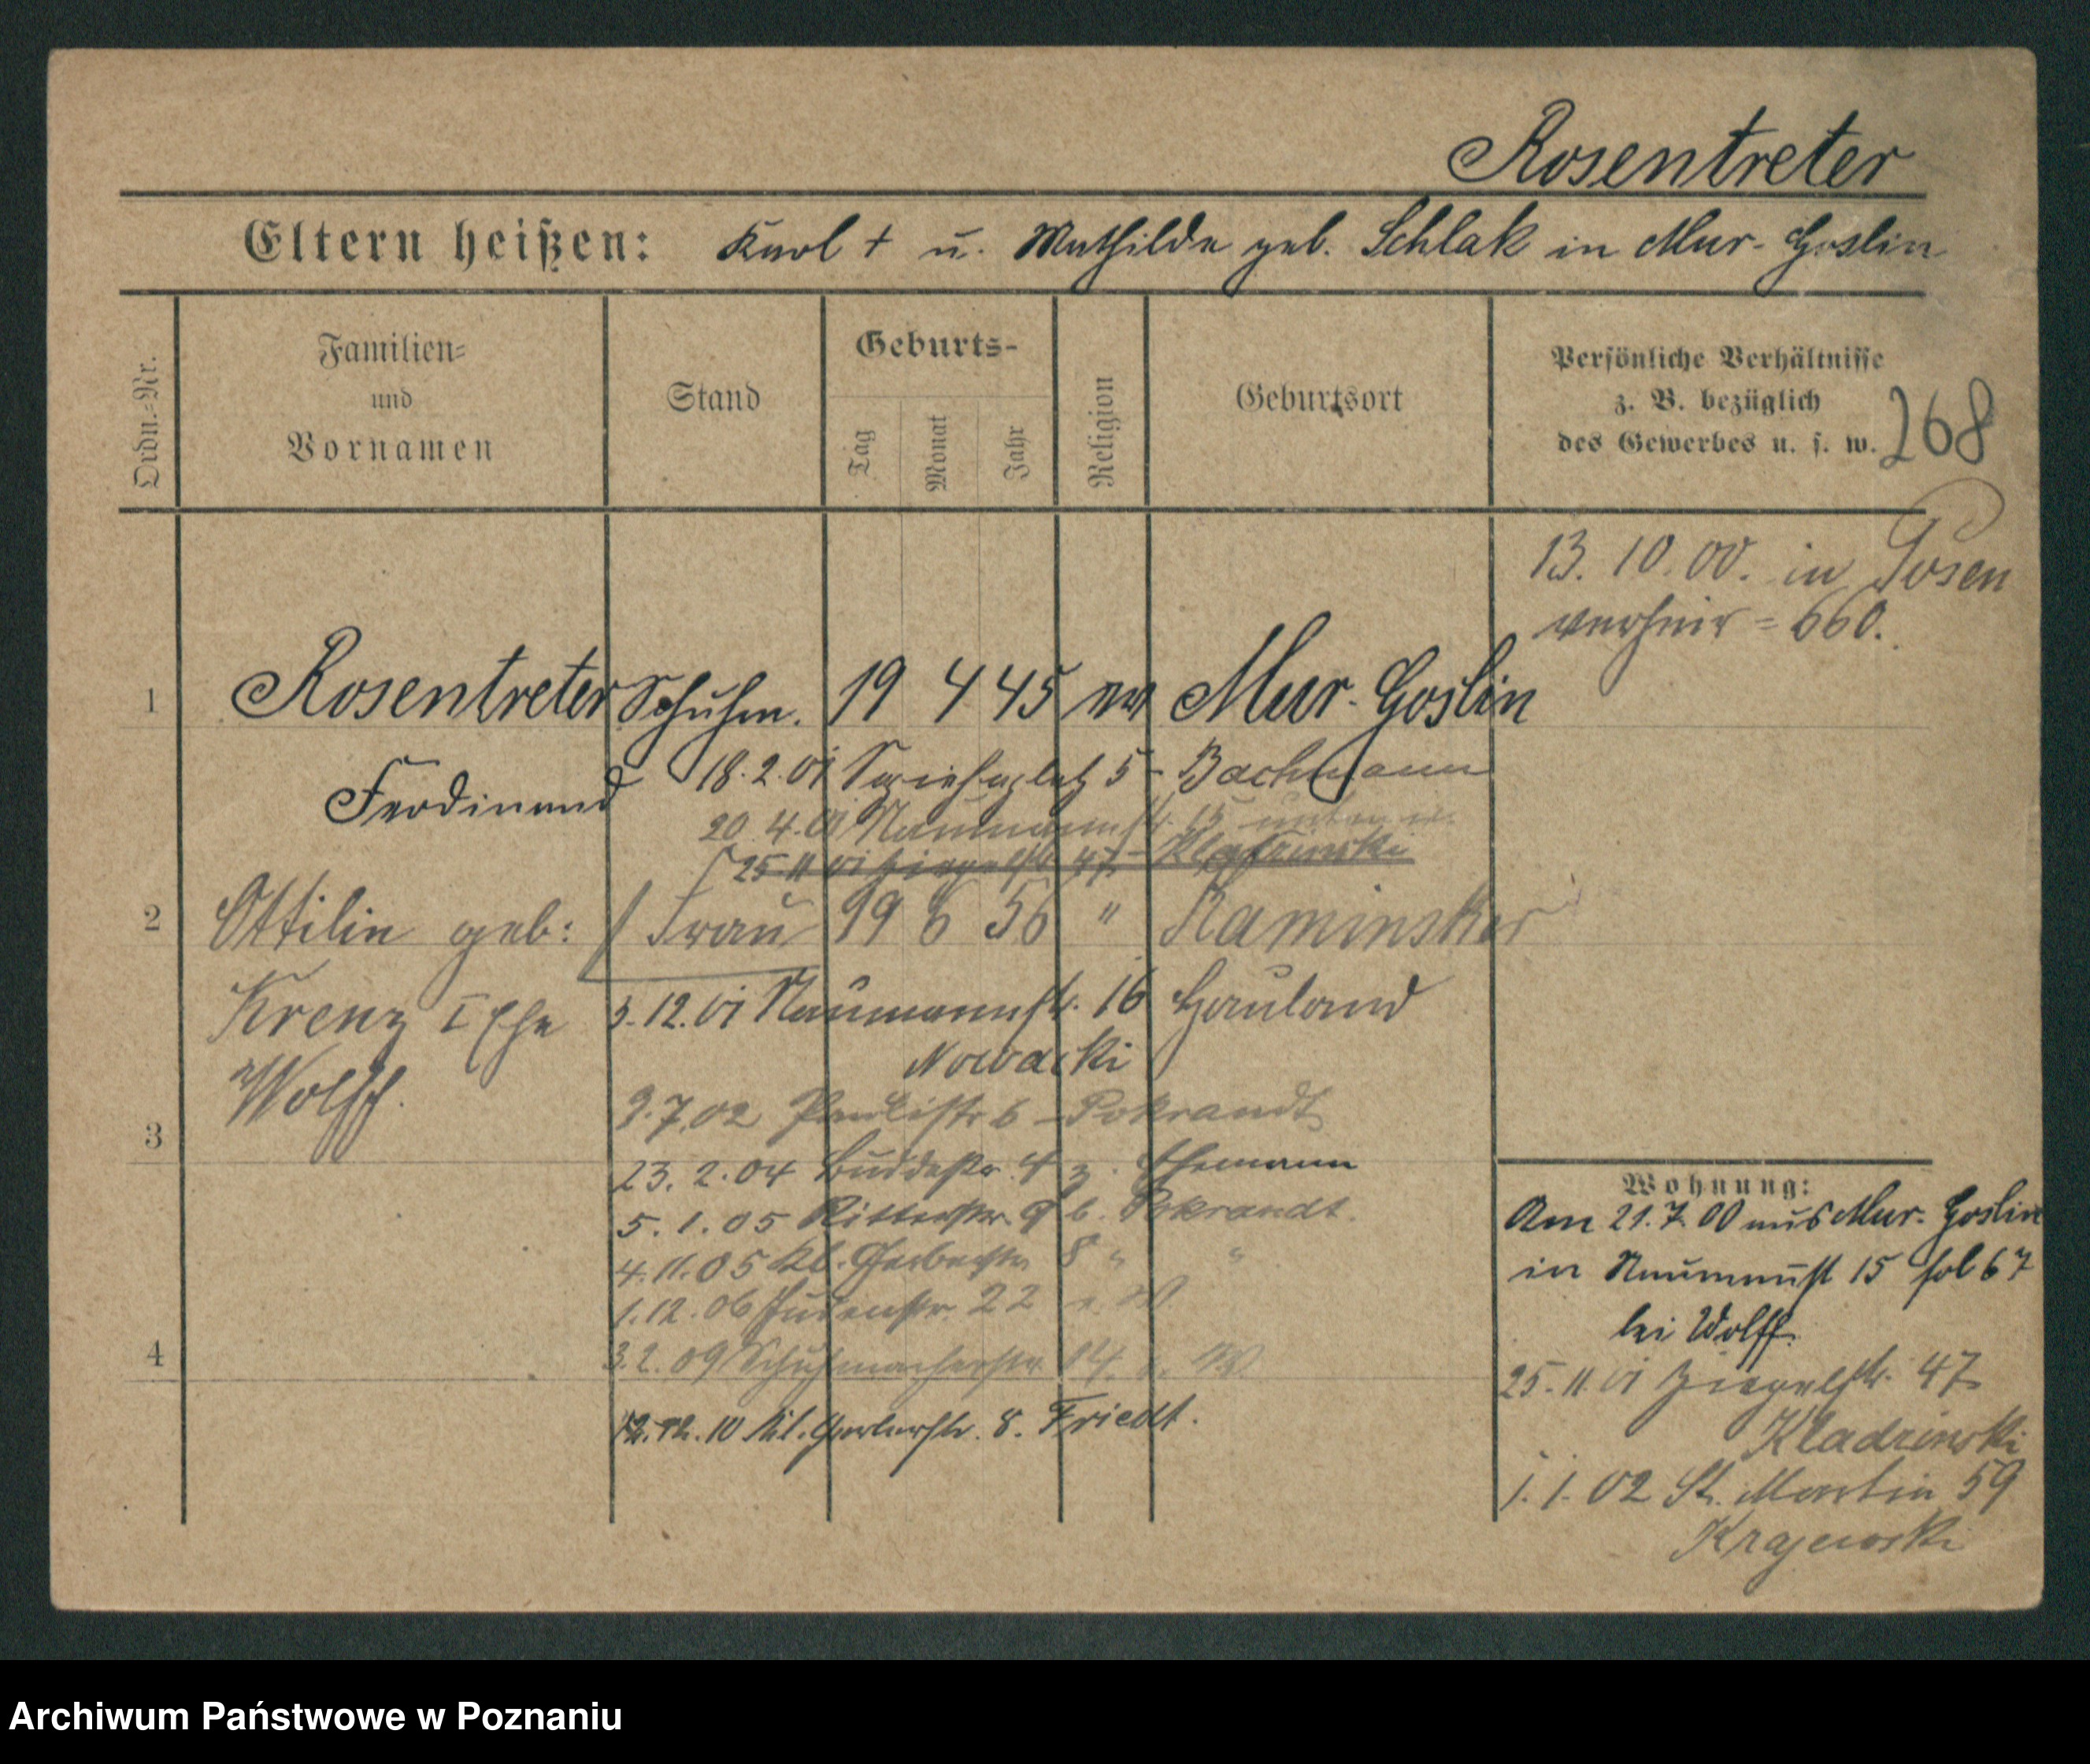 Rosentreter
Eltern heißen: Karl † u. Mathilde geb. Schlak in Mur-Goslin
Ordn.-Nr.
Familien-
und
Vornamen
Stand
Geburts-
Tag
Monat
Jahr
Religion
Geburtsort
Persönliche Verhältnisse
z. B. bezüglich
des Gewerbes u. s. w.
268
13. 10. 00. in Posen
verheir = 660.
1 Rosentreter Schuhm. 19 4 45 ev Mur-Goslin
Ferdinand
18.2.01 5 - Bachmann
20.4.01 Naumannstr. 15 unten
25 11 01 Ziegelstr. 47 - Kladzinski
2 Ottilie geb: Frau 19 6 56 " Kaminsker
Krenz I Ehe
Wolff.
3.12.01 Naumannstr. 16 Hauland
Nowacki
3
9.7.02 Paulistr 6 - Pokrandt
23.2.04 Buddestr. 4 z. Ehemann
5.1.05 Ritterstr. 9 b. Pokrandt.
4.11.05 Kl. Gerberstr 8 " "
1.12.06 Judenstr. 22 e. W.
4
3.2.09 Schuhmacherstr. 14. e. W.
10 Kl. Gerberstr. 8. Friedt.
Wohnung:
Am 21.7.00 aus Mur-Goslin
in Naumanst 15 fol 67
bei Wolff.
25.11.01 Ziegelstr. 47
Kladzinski
1.1.02 St. Martin 59
Krajewski
Archiwum Państwowe w Poznaniu